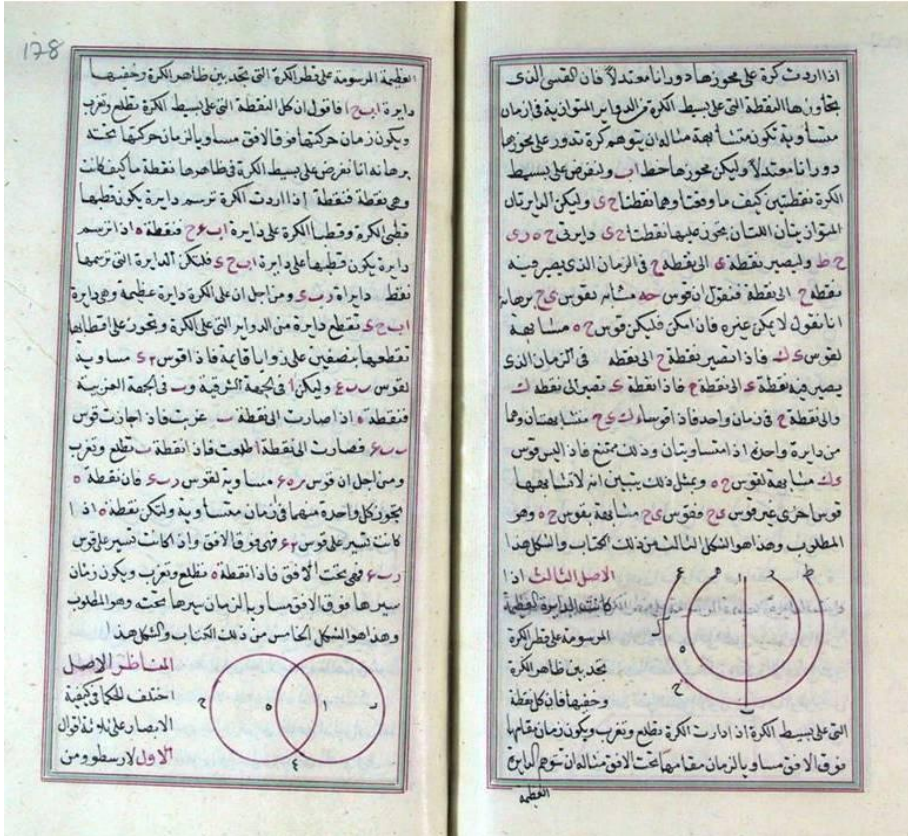 اذا ادرت كرة على محورها دورانا معتدلا فان القسى الذى
يتجاوزها النقطة التى على بسيط الكرة من الدواير المتوازية فى ازمان
متساوية تكون متشابهة مثاله ان يتوهم كرة تدور على محورها
دورانا معتدلا وليكن محورها خط اب ولنفرض على بسيط
الكرة نقطتين كيف ما وقعتا وهما نقطتا ح ى وليكن الدايرتان
المتوازيتان اللتان يتحرك عليها نقطتا ح ى دايرتى ح ه ر ى
ح ط وليصير نقطة ى الى نقطة ح فى الزمان الذى يصير فيه
نقطة ح الى نقطة فنقول ان قوس حه مشابه لقوس ى ح برهانه
انا نقول لا يمكن غيره فان امكن فليكن قوس ح ه مشابهة
لقوس ى ك فاذا تصير نقطة ح الى نقطة فى الزمان الذى
يصير فيه نقطة ى الى نقطة ح فاذا نقطة ى تصير الى نقطه ك
والى نقطة ح فى زمان واحد فاذا قوسا ك ى ح متشابهتان وهما
من دايرة واحدة اذا متساويتان وذلك ممتنع فاذا ليس قوس
ى ك مشابهة لقوس ح ه وبمثل ذلك يتبين انه لا تشابهها
قوس اخرى غير قوس ى ح فقوس ى ح مشابهة بقوس ح ه وهو
المطلوب وهذا هو الشكل الثالث من ذلك الكتاب والشكل هذا
الاصل الثالث اذا
كانت الدايرة العظيمة
المرسومة على قطر الكرة
تحد بين ظاهر الكرة
وخفيها فان كل نقطة
التى على بسيط الكرة اذ ادارت الكرة تطلع وتغرب ويكون زمان مقامها
فوق الافق مساويا لزمان مقامها تحت الافق مثاله ان نتوهم الدايرة
العظيمة
ط ح ا م ع
ه
ح
ب
178
العظيمة المرسومة على قطر الكرة التى تحد بين ظاهر الكرة وخفيها
دايرة اب ح ى فاقول ان كل النقطة التى على بسيط الكرة تطلع وتغرب
ويكون زمان حركتها فوق الافق مساويا لزمان حركتها تحته
برهانه انا نفرض على بسيط الكرة فى ظاهرها نقطة ما كيف كانت
وهى نقطة فنقطة اذا ادرت الكرة ترسم دايرة يكون قطبها
قطبى الكرة وقطبا الكرة على دايرة اب ع ح فنقطة ه اذا ترسم
دايرة يكون قطبها على دايرة اب ح ى فلتكن الدايرة التى ترسمها
نقط دايراة ر ب ى ومن اجل ان على الكرة دايرة عظيمة وهى دايرة
اب ح ى تقطع دايرة من الدواير التى على الكرة ويتجوز على اقطابها
تقطعها بنصفين على زوايا قايمة فاذا قوس ر ى مساوية
لقوس ر ب ع وليكن ا فى الجهة الشرقية و ب فى الجهة الغربية
فنقطة ه اذا صارت الى نقطة ب غربت فاذا جازت قوس
ب ع فصارت الى نقطة ا طلعت فاذا نقطة ب تطلع وتغرب
ومن اجل ان قوس ر ه ع مساوية لقوس ر ب ع فان نقطة ه
يجوز كل واحدة منهما فى زمان متساوية ولتكن نقطة ه اذ ا
كانت تسير على قوس ر ع فهى فوق الافق واذا كانت تسير على قوس
ر ب ع فهى تحت الافق فاذا نقطة ه تطلع وتغرب ويكون زمان
سيرها فوق الافق مساويا لزمان سيرها تحته وهو المطلوب
وهذا هو الشكل الخامس من ذلك الكتاب والشكل هذا
المناظر الاصل
اختلف الحكما فى كيفية
الابصار على ثلاثة اقوال
الاول لارسطو ومن
ح ه ا ر
ع